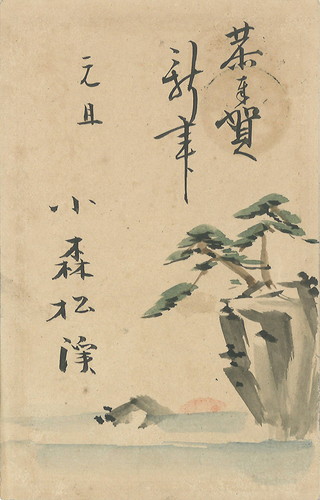 恭賀
新年
元旦
小森松渓